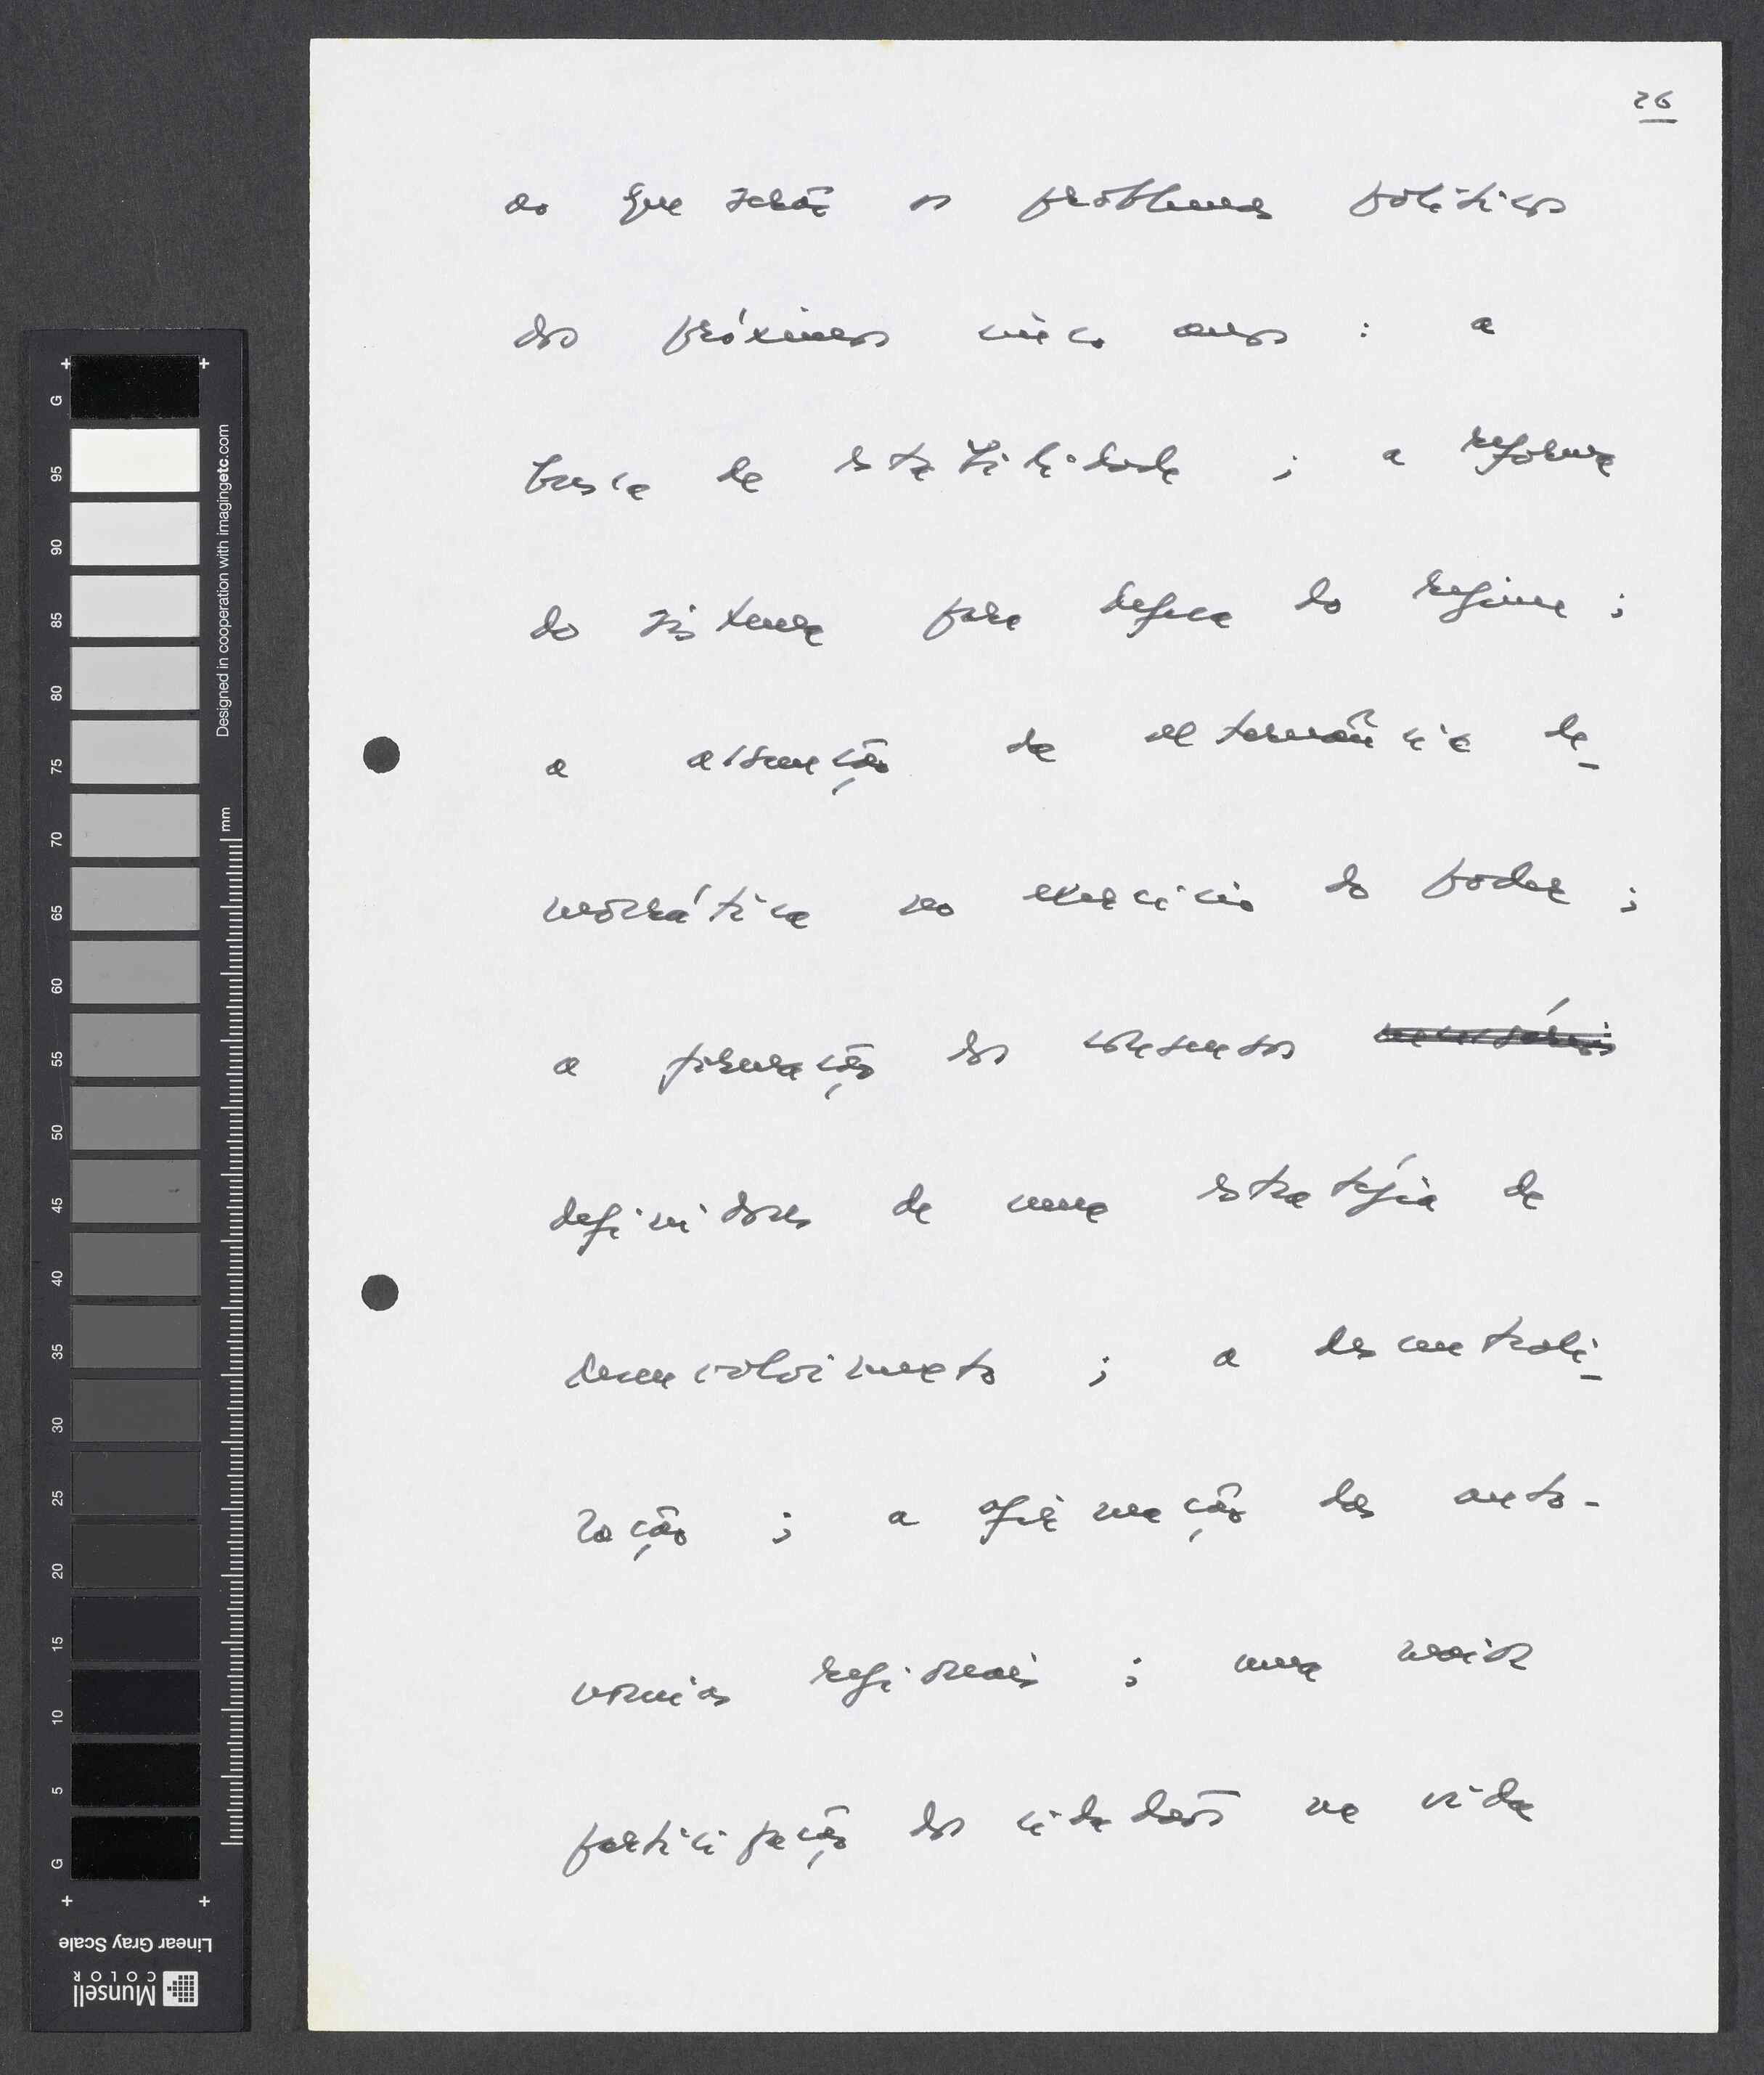 26
ao que serão os problemas políticos
dos próximos cinco anos : a
busca de estabilidade ; a reforma
do sistema para defesa do regime ;
a assunção da alternância de-
mocrática no exercício do poder ;
a formação dos consensos necessários
definidores de uma estratégia de
desenvolvimento ; a descentrali-
zação ; a afirmação das auto-
nomias regionais ; uma maior
participação dos cidadãos na vida
+ +
G
95
90
85
80
75
70
65
60
55
50
45
40
35
30
25
20
15
10
5
G
+ +
Designed in cooperation with imagingetc.com
mm
Linear Gray Scale
Munsell
COLOR